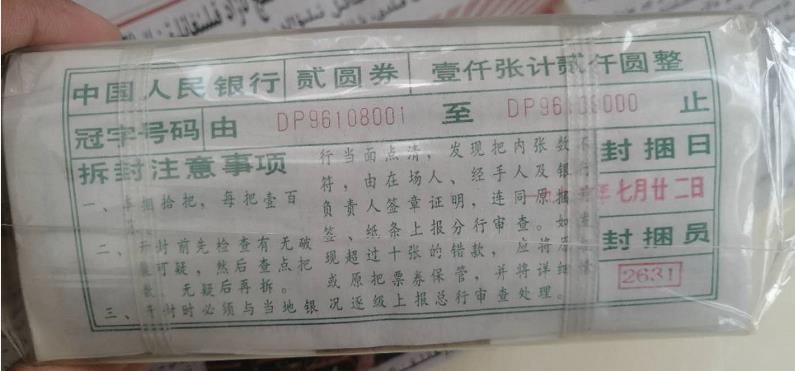 中国人民银行 贰圆券 壹仟张计贰仟圆整
冠字号码 由 DP96108001 至 止
拆封注意事项
一、每捆拾把，每把壹百
二、开封前先检查有无破
可疑，然后查点把
数，无疑后再拆。
三、开封时必须与当地银
行当面点清，发现把内张数不
符，由在场人、经手人及银行
负责人签章证明，连同原捆
签、纸条上报分行审查。如
现超过十张的错款，应将原
或原把票券保管，并将详细
况逐级上报总行审查处理。
封捆日
年七月廿二日
封捆员
2631